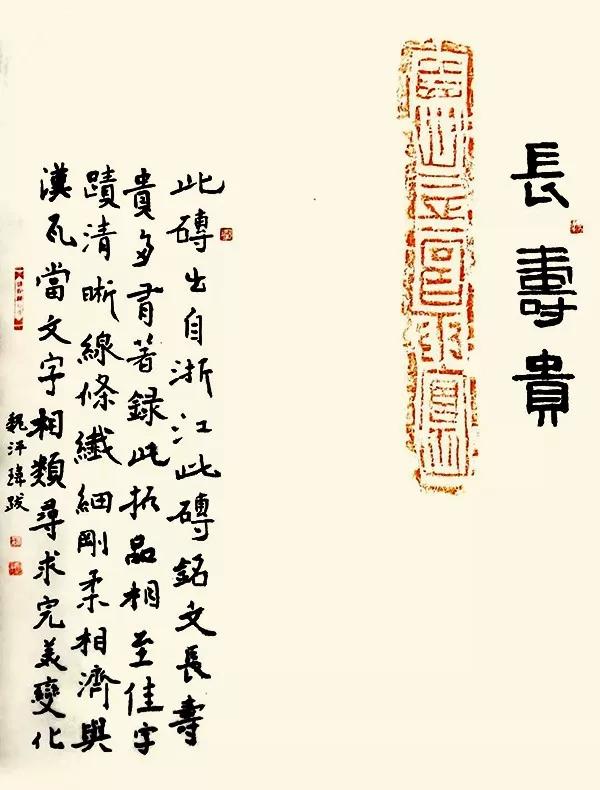 長壽貴
此磚出自浙江此磚銘文長壽
貴多有著錄此拓品相至佳字
蹟清晰線條纖細剛柔相濟與
漢瓦當文字相類尋求完美變化
魏泙瑋跋